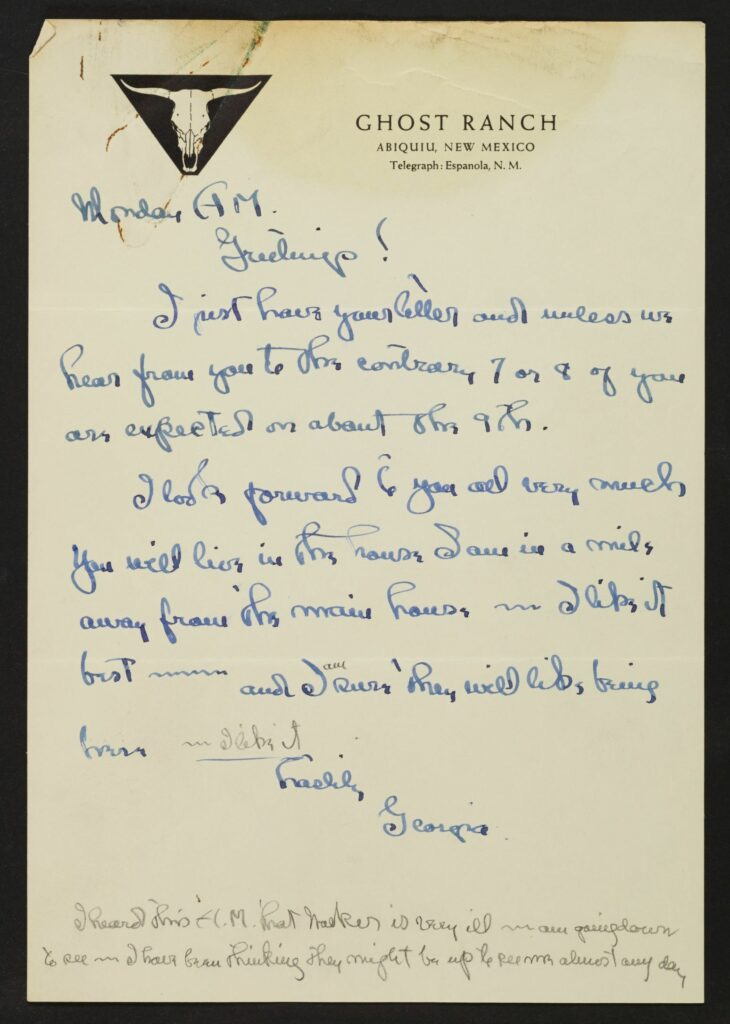 GHOST RANCH
ABIQUIU, NEW MEXICO
Telegraph: Espanola, N. M.
Monday A M.
Greetings!
I just have your letter and unless we
hear from you to the contrary 7 or 8 of you
are expected on about the 9th.
I look forward to you all very much
You will live in the house I am in a mile
away from the main house — I like it
best — and I am sure they will like being
here — I like it
Hastily
Georgia
I heard this A.M. that is very ill — am going down
to see — I have been thinking they might be up to see me almost any day